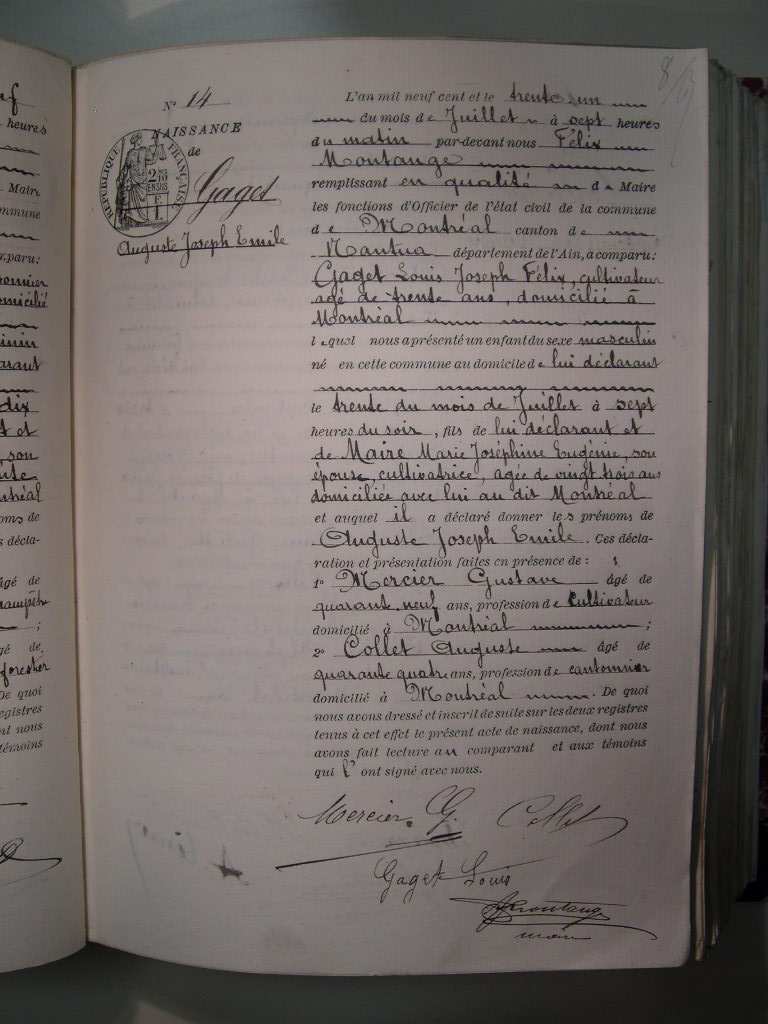 f
heures
Maire
commune
paru:
domicilié
dix
t et
son
Montréal
noms de
s décla-
âgé de
;
gé de
forestier
De quoi
registres
nt nous
témoins
8/
Nº 14
NAISSANCE
de
Gaget
Auguste Joseph Emile
RÉPUBLIQUE FRANÇAISE
L'an mil neuf cent et le trente un
du mois de Juillet à sept heures
du matin par-devant nous Félix
Montange
remplissant en qualité de Maire
les fonctions d'Officier de l'état civil de la commune
de Montréal canton de
Nantua département de l'Ain, a comparu:
Gaget Louis Joseph Félix, cultivateur
agé de trente ans, domicilié à
Montréal
lequel nous a présenté un enfant du sexe masculin
né en cette commune au domicile de lui déclarant
le trente du mois de Juillet à sept
heures du soir, fils de lui déclarant et
de Maire Marie Joséphine Eugénie, son
épouse, cultivatrice, agée de vingt trois ans
domiciliée avec lui au dit Montréal
et auquel il a déclaré donner les prénoms de
Auguste Joseph Emile. Ces décla-
ration et présentation faites en présence de :
1º Mercier Gustave âgé de
quarant neuf ans, profession de Cultivateur
domicilié à Montréal ;
2º Collet Auguste âgé de
quarante quatre ans, profession de cantonnier
domicilié à Montréal. De quoi
nous avons dressé et inscrit de suite sur les deux registres
tenus à cet effet le présent acte de naissance, dont nous
avons fait lecture au comparant et aux témoins
qui l' ont signé avec nous.
Mercier G. Collet
Gaget Louis
Montange